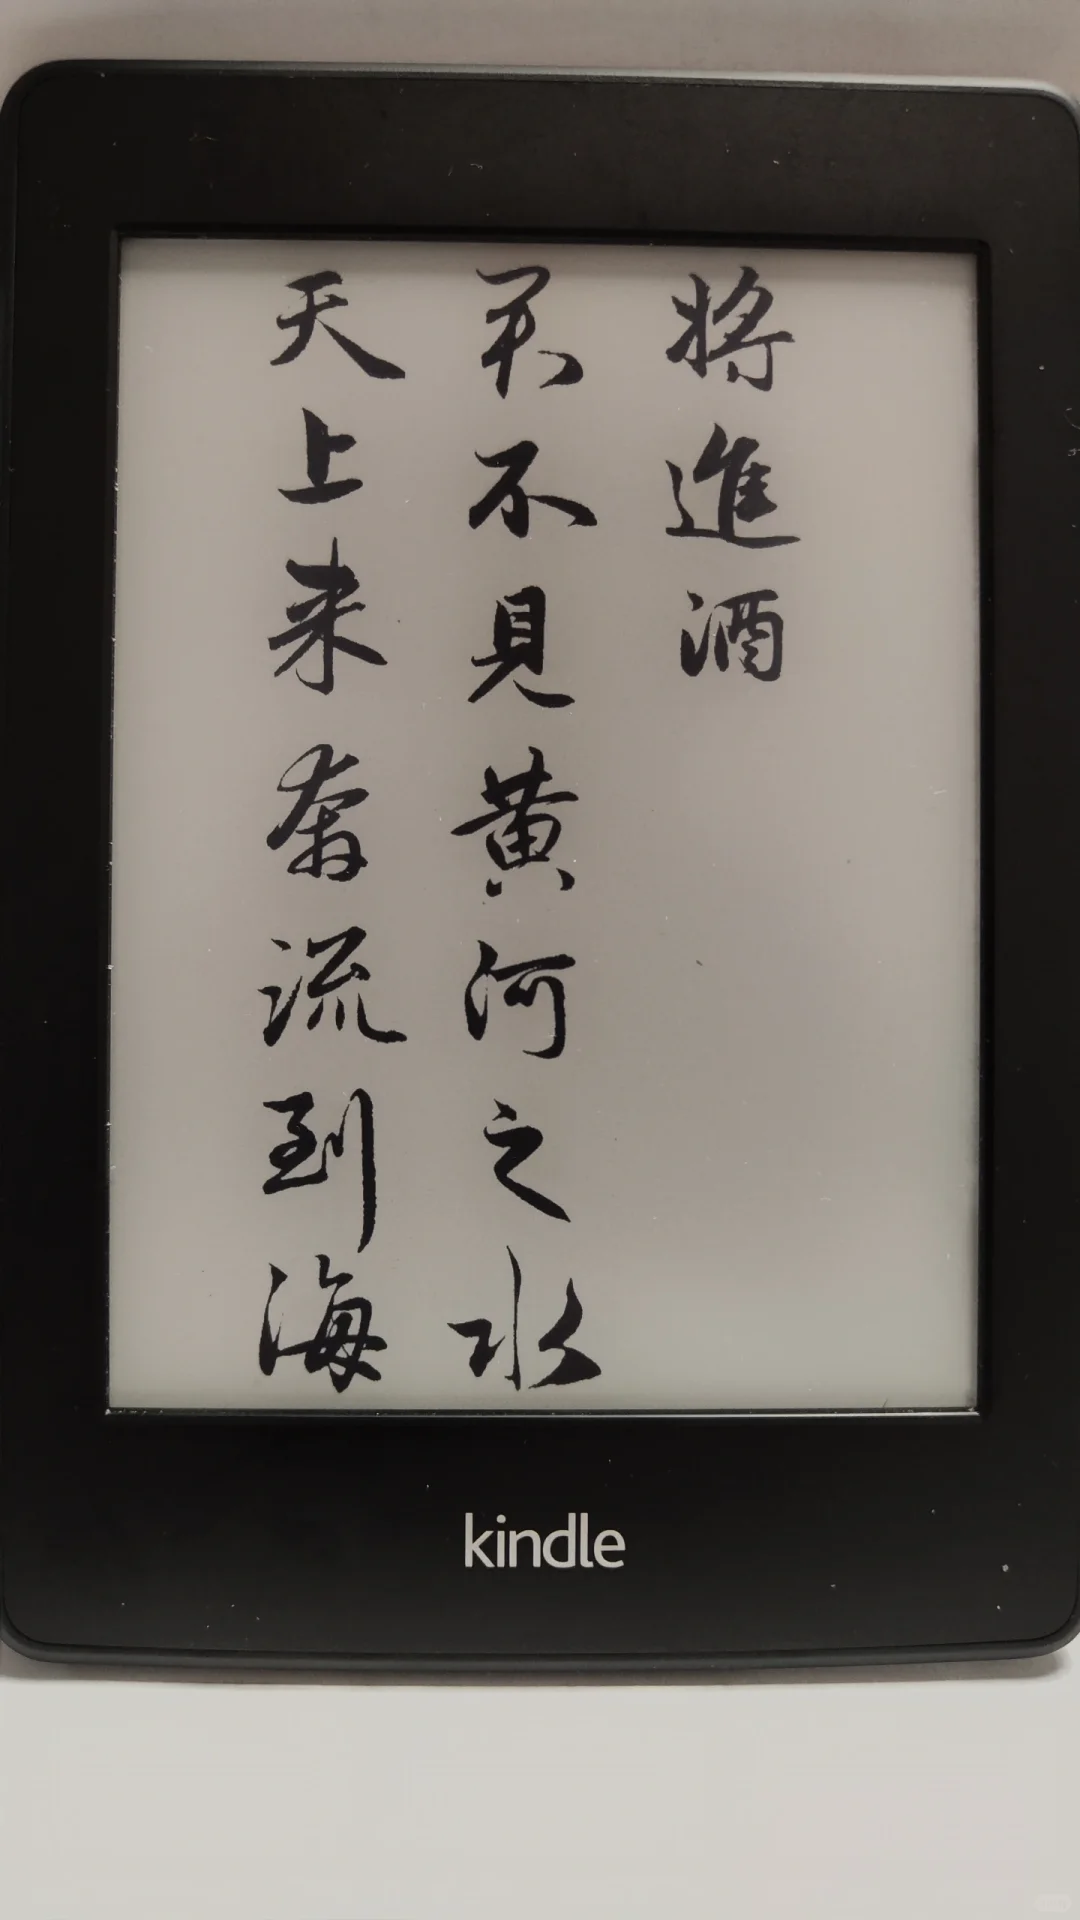 將進酒
君不見黄河之水
天上来奔流到海
kindle